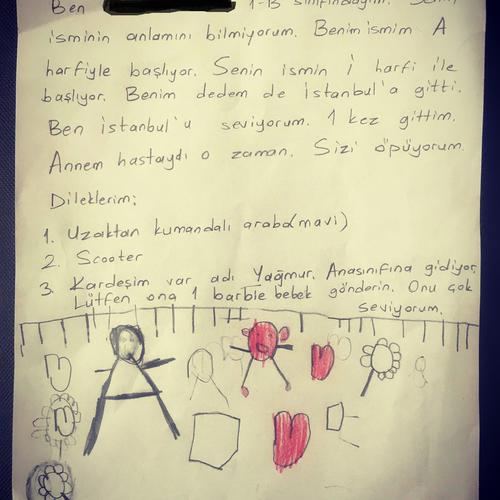 Ben 1-B sınıfındayım.
isminin anlamını bilmiyorum. Benim ismim A
harfiyle başlıyor. Senin ismin İ harfi ile
başlıyor. Benim dedem de İstanbul'a gitti.
Ben İstanbul'u seviyorum. 1 kez gittim.
Annem hastaydı o zaman. Sizi öpüyorum.
Dileklerim;
1. Uzaktan kumandalı araba(mavi)
2. Scooter
3. Kardeşim var adı Yağmur. Anasınıfına gidiyor.
Lütfen ona 1 barbie bebek gönderin. Onu çok
seviyorum.